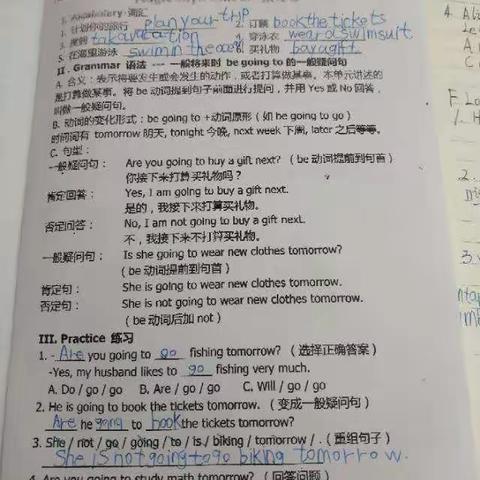 I. Vocabulary 词汇
1. 计划你的旅行 plan your trip 2. 订票 book the tickets
3. 度假 take a vacation 4. 穿泳衣 wear a swimsuit
5. 在海里游泳 swim in the ocean 6. 买礼物 buy a gift
II. Grammar 语法 --- 一般将来时 be going to 的一般疑问句
A. 含义：表示将要发生或会发生的动作，或者打算做某事。本单元讲述的
是打算做某事。将 be 动词提到句子前面进行提问，并用 Yes 或 No 回答，
叫做一般疑问句。
B. 动词的变化形式：be going to +动词原形（如 he going to go）
时间词有 tomorrow 明天, tonight 今晚, next week 下周, later 之后等等。
C. 句型：
一般疑问句： Are you going to buy a gift next? （be 动词提前到句首）
你接下来打算买礼物吗？
肯定回答： Yes, I am going to buy a gift next.
是的，我接下来打算买礼物。
否定回答： No, I am not going to buy a gift next.
不，我接下来不打算买礼物。
一般疑问句： Is she going to wear new clothes tomorrow?
（be 动词提前到句首）
肯定句： She is going to wear new clothes tomorrow.
否定句： She is not going to wear new clothes tomorrow.
（be 动词后加 not）
III. Practice 练习
1. - Are you going to go fishing tomorrow? （选择正确答案）
-Yes, my husband likes to go fishing very much.
A. Do / go / go B. Are / go / go C. Will / go / go
2. He is going to book the tickets tomorrow. （变成一般疑问句）
Are he going to book the tickets tomorrow?
3. She / not / go / going / to / is / biking / tomorrow / . （重组句子）
She is not going to go biking tomorrow.
4. Are you going to study math tomorrow? （回答问题）